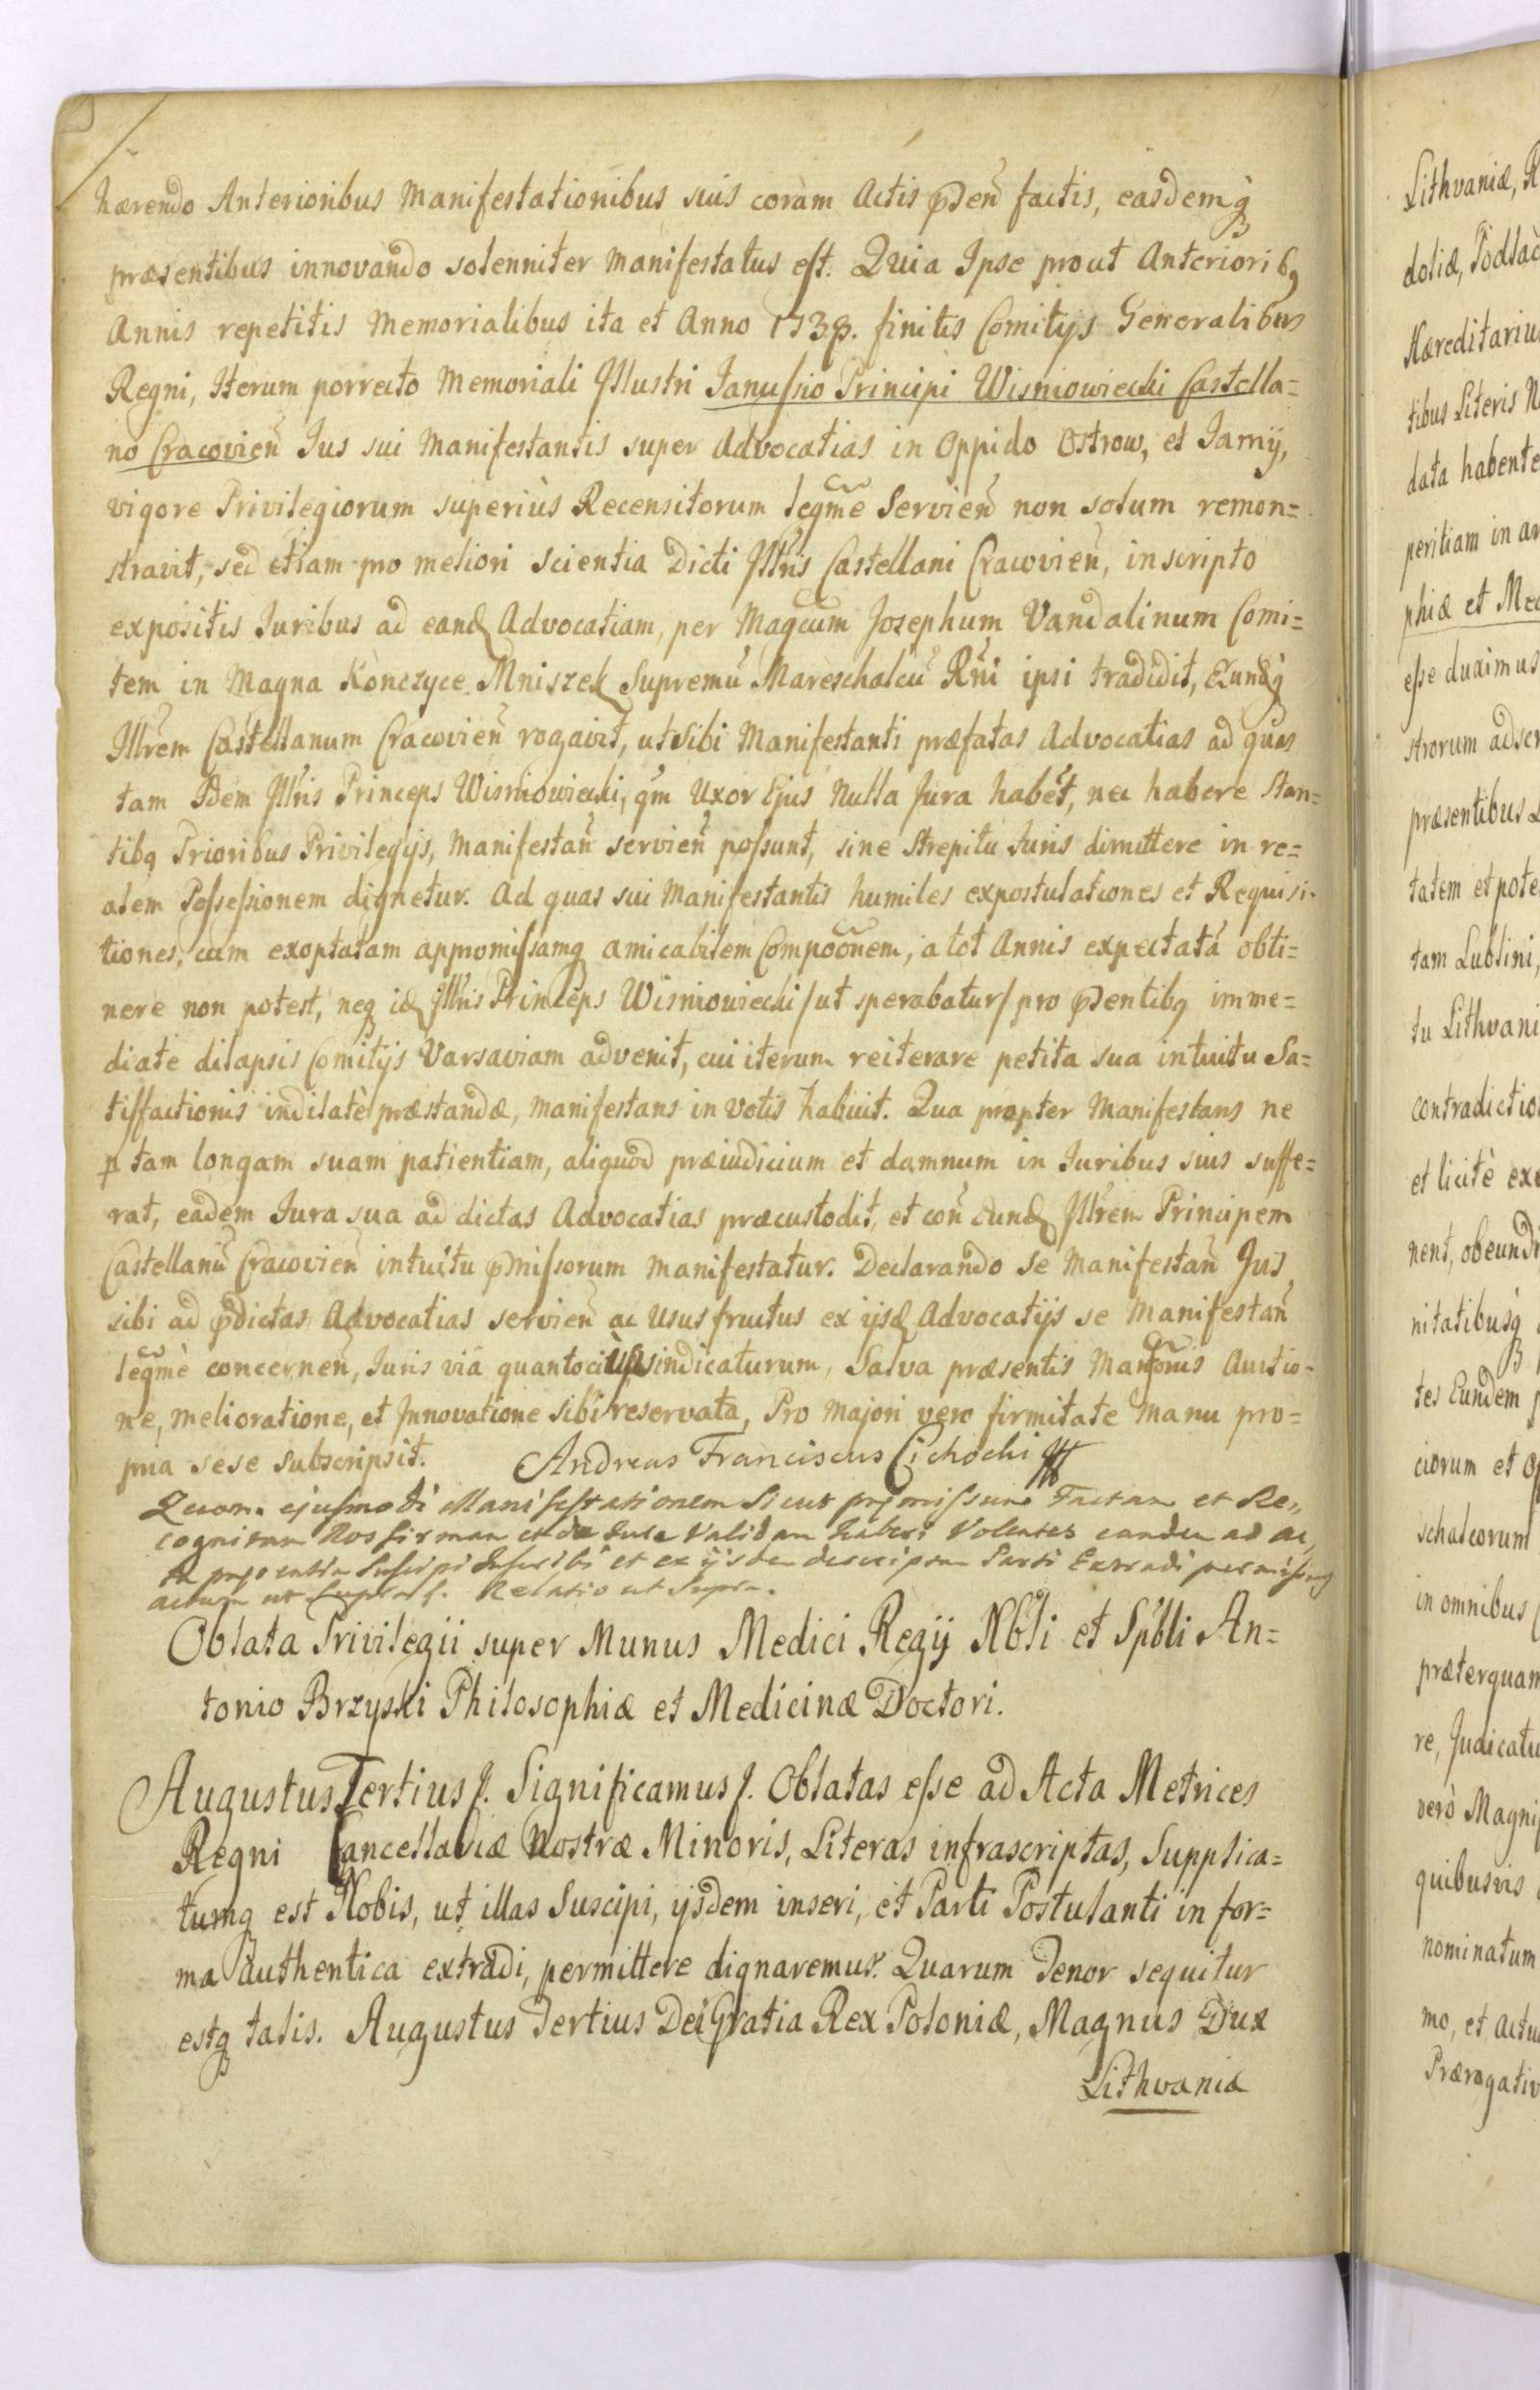 hærendo Anterioribus Manifestationibus suis coram Actis pñtibus factis, easdemq̃
præsentibus innovando solenniter manifestatus est. Quia Ipse prout Anteriorib9
Annis repetitis Memorialibus ita et Anno 1738. finitis Comitijs Generalibus
Regni, Iterum porrecto Memoriali Illustri Janussio Principi Wisniowiecki Castella=
no Cracovieñ Ius sui Manifestantis super Advocatias in Oppido Ostrow, et Jamÿ,
vigore Privilegiorum superiùs Recensitorum legm̃e Servieñ non solum remon=
stravit, sed etiam pro meliori scientia Dicti Illr̃is Castellani Cracovieñ, in scripto
expositis Iuribus ad eand Advocatiam, per Magcum Josephum Vandalinum Comi=
tem in Magna Konczyce Mniszek Supremũ Mareschalcũ Rñi ipsi tradidit, Eundq̃
Illr̃em Castellanum Cracovieñ rogavit, ut Sibi Manifestanti præfatas Advocatias ad quas
tam Idem Illr̃is Princeps Wisniowiecki, qm Uxor Ejus Nulla Jura habet, nec habere Stan=
tibq Prioribus Privilegijs, Manifestañ servieñ possunt, sine Strepitu Iuris dimittere in re=
alem Possessionem dignetur. Ad quas sui Manifestantis humiles expostulationes et Requisi-
tiones, cum exoptatam appromissamq amicabilem Compoõnem, a tot Annis expectatã obti=
nere non potest, neq id Illr̃is Princeps Wisniowiecki /ut sperabatur/ pro pñdentibq imme=
diate dilapsis Comitijs Varsaviam advenit, cui iterum reiterare petita sua intuitu Sa=
tisfactionis indilatè præstandæ, manifestans in Votis habuit. Qua propter Manifestans ne
p tam longam suam patientiam, aliquod præiudicium et damnum in Iuribus suis suffe=
rat, eadem Iura sua ad dictas Advocatias præcustodit, et coñ Eund Illr̃em Principem
Castellanũ Cracovieñ intuitu p̃missorum manifestatur. Declarando se Manifestañ Jus
sibi ad p̃dictas Advocatias servieñ ac Usus fructus ex ijsd Advocatijs se Manifestañ
legm̃è concerneñ, Iuris viâ quantociùs vindicaturum, Salva præsentis Manõnis Auctio-
ne, melioratione, et Innovatione Sibi reservata, Pro majori vero firmitate manu pro=
pria sese subscripsit. Andreas Franciscus Cichocki
Quam ejusmodi Manifestationem Sicut præmissum Factam et Re,,
cognitam Nos firmam et de Jure Validam haberi Volentes eandem ad ac,,
ta præsentia Suscipi Inscribi et ex ijsdem descriptam Parti Extradi permisimus
actum ut supra. Relatio ut Supra.
Oblata Privilegii super Munus Medici Regÿ Nb̃li et Spb̃li An=
tonio Brzyski Philosophiæ et Medicinæ Doctori.
Augustus Tertius f. Significamus f. Oblatas esse ad Acta Metrices
Regni Cancellariæ Nostræ Minoris, Literas infrascriptas, Supplica=
tumq est Nobis, ut illas Suscipi, ijsdem inseri, et Parti Postulanti in for=
ma authentica extradi, permittere dignaremur. Quarum Tenor sequitur
estq talis. Augustus Tertius Dei Gratia Rex Poloniæ, Magnus Dux
Lithvaniæ
Lithvaniæ, R
doliæ, Podlac
Hæreditarius
tibus Literis N
data habente
peritiam in ar
phiæ et Med
esse duximus
strorum adscr
præsentibus
tatem et pote
tam Lublini,
tu Lithvani
contradictio
et licitè exe
nent, obeundi
nitatibusq̃
tes Eundem p
ciorum et Of
schalcorum
in omnibus
præterquam
re, Judicatu
verò Magnif
quibusvis
nominatum
mo, et actu
Prærogativ